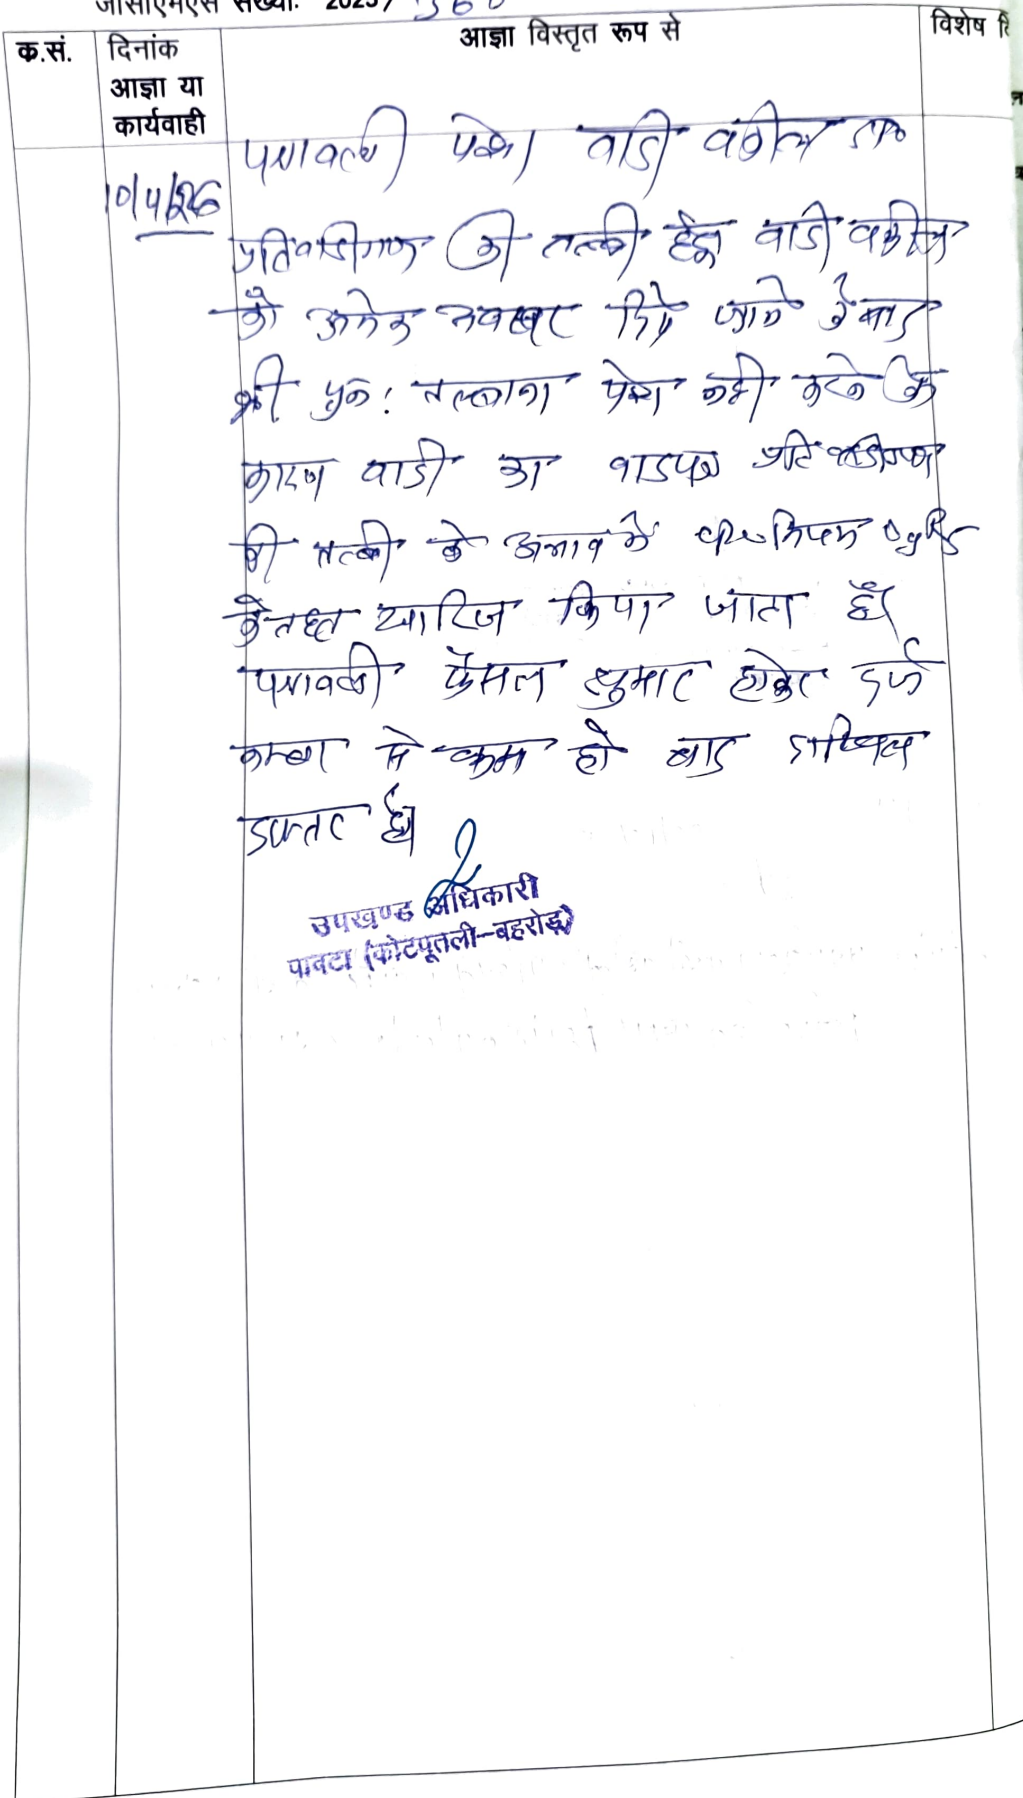 जीसीएमएस संख्याः 2025/ 360
क.सं.
दिनांक
आज्ञा या
कार्यवाही
आज्ञा विस्तृत रूप से
विशेष
10/4/26
पत्रावली पेश। वादी वकील उप०
प्रतिवादीगण की तलबी हेतु वादी वकील
को अनेक अवसर दिये जाने के बाद
भी पुनः तलबाना पेश नही करने के
कारण वादी का वादपत्र प्रतिवादीगण
की तलबी के अभाव में नियम
के तहत खारिज किया जाता है।
पत्रावली फैसल शुमार होकर दर्ज
नम्बर से कम हो बाद दाखिल
दफ्तर हो।
उपखण्ड अधिकारी
पावटा (कोटपूतली-बहरोड़)